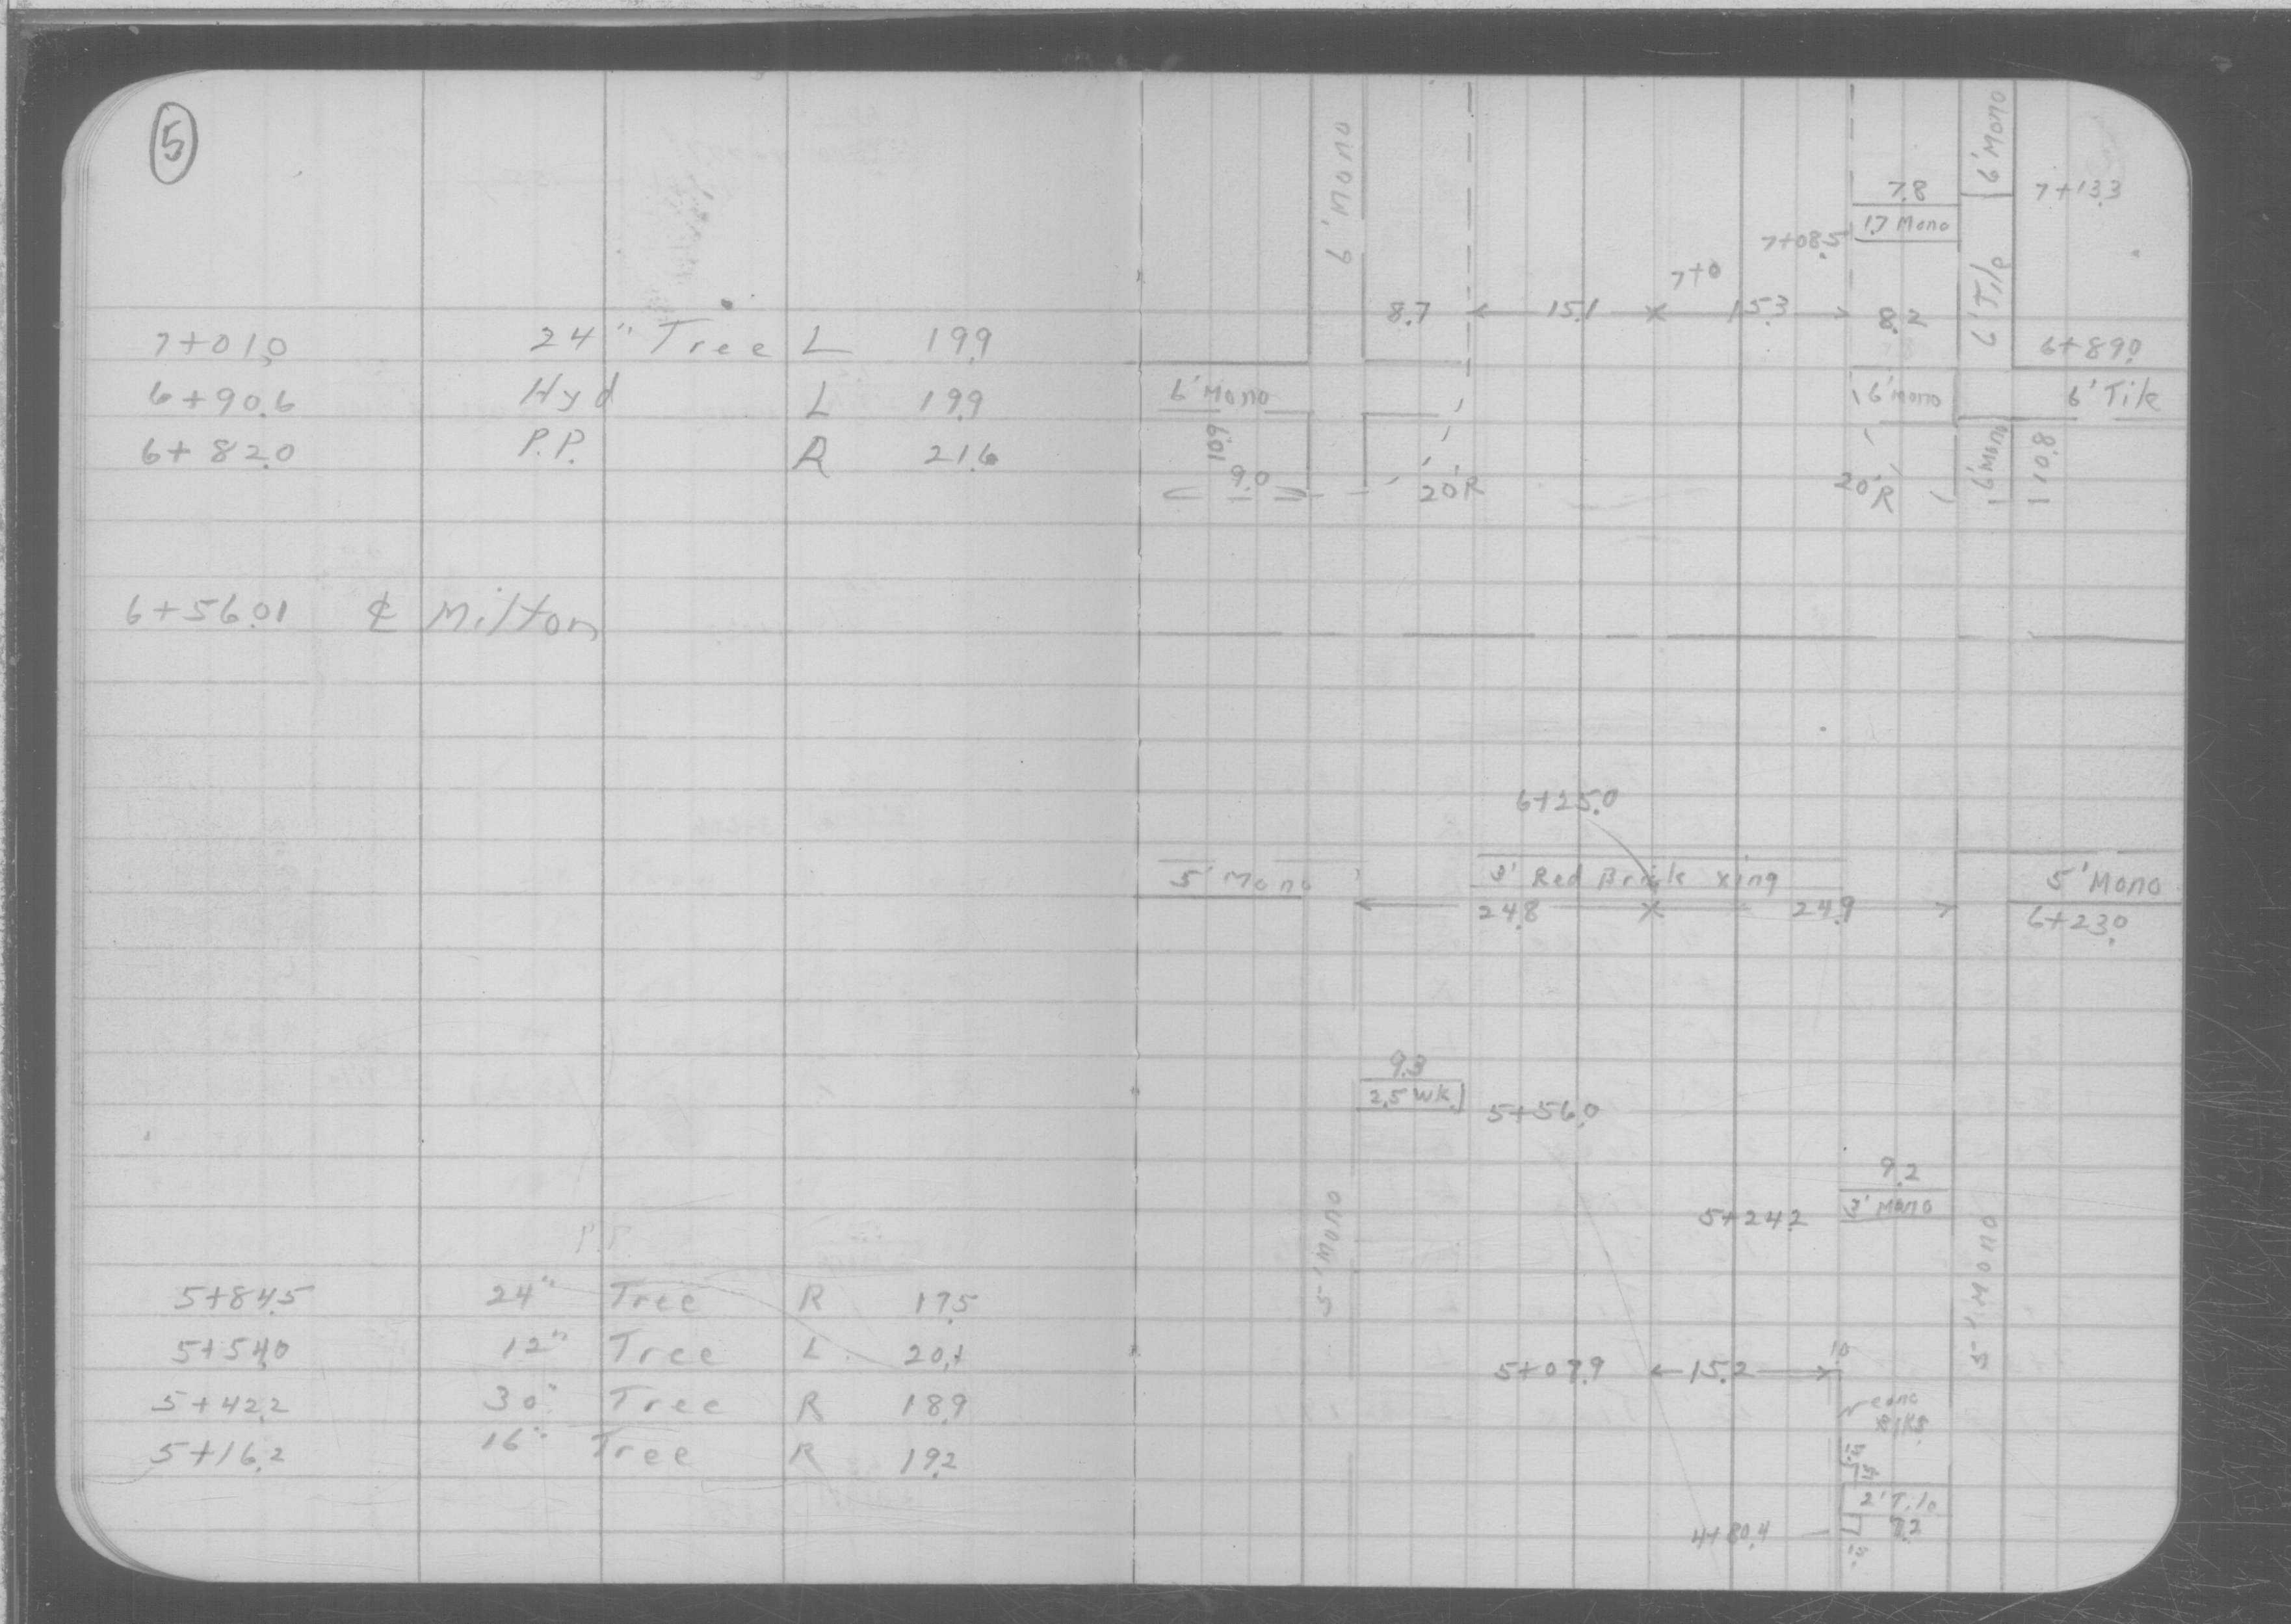 5
7+01.0 24" Tree L 19.9
6+90.6 Hyd L 19.9
6+82.0 P.P. R 21.6
6+56.01 ₵ Milton
P.P.
5+84.5 24" Tree R 17.5
5+54.0 12" Tree L 20.1
5+42.2 30" Tree R 18.9
5+16.2 16" Tree R 19.2
6' Mono
6' Mono
7.8
7+13.3
17 Mono
7+08.5
7+0
6' Tile
8.7 15.1 15.3 8.2
6+89.0
6' Mono
6' Mono
6' Tile
10.9
6' Mono
10.8
9.0
20'R
20'R
6+25.0
5' Mono
3' Red Brick Xing
5' Mono
24.8
24.9
6+23.0
9.3
2.5 Wk.
5+56.0
9.2
3' Mono
5+24.2
5' Mono
5' Mono
5+07.9 15.2
conc
2' Tile
4+80.4